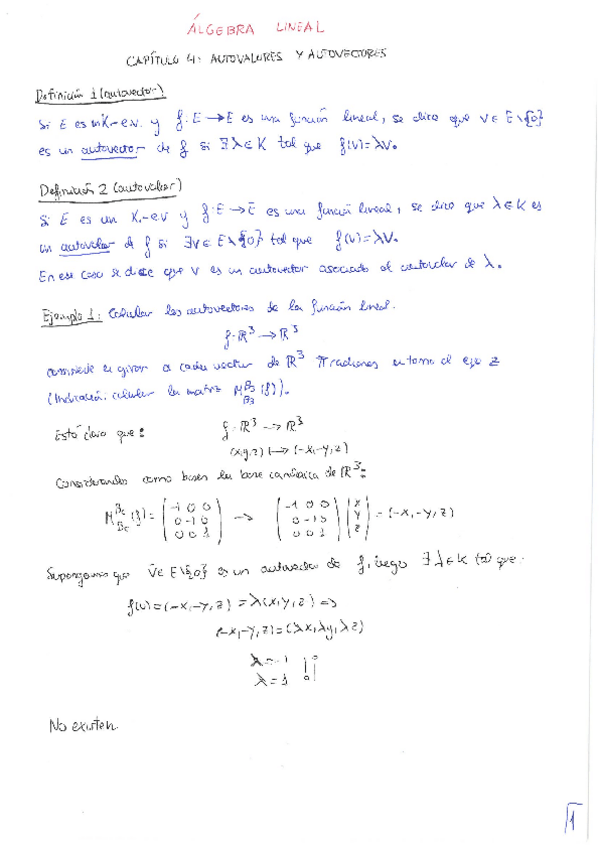 ÁLGEBRA LINEAL
CAPÍTULO 4: AUTOVALORES Y AUTOVECTORES
Definición 1 (autovector)
Si E es un K-e.v. y f: E → E es una función lineal, se dice que v ∈ E\{0}
es un autovector de f si ∃ λ ∈ K tal que f(v) = λv.
Definición 2 (autovalor)
Si E es un K-e.v y f: E → E es una función lineal, se dice que λ ∈ K es
un autovalor de f si ∃v ∈ E\{0} tal que f(v) = λv.
En ese caso se dice que v es un autovector asociado al autovalor de λ.
Ejemplo 1: Calcular los autovectores de la función lineal.
f: ℝ³ → ℝ³
consistente en girar a cada vector de ℝ³ π radianes en torno al eje z
(Indicación: calcular la matriz M B₃ B₃ (f)).
Está claro que: f: ℝ³ → ℝ³
(x,y,z) ↦ (-x,-y,z)
Considerando como bases la base canónica de ℝ³:
M Bc Bc (f) = ( -1 0 0 ; 0 -1 0 ; 0 0 1 ) → ( -1 0 0 ; 0 -1 0 ; 0 0 1 ) ( x ; y ; z ) = (-x,-y,z)
Supongamos que v ∈ E\{0} es un autovector de f, luego ∃ λ ∈ K tal que:
f(v) = (-x,-y,z) = λ(x,y,z) =>
(-x,-y,z) = (λx,λy,λz)
λ = -1
λ = 1 ¡!
No existen.
1